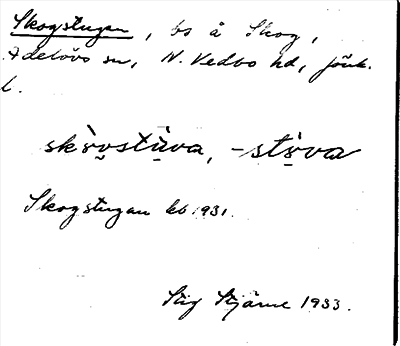 Skogstugan, bs å Skog,
Adelövs sn, N. Vedbo hd, jönk.
l.
skò̤u̯stṳ̀va, -stò̤va
Skogstugan kb 1931.
Stig Stjärne 1933.